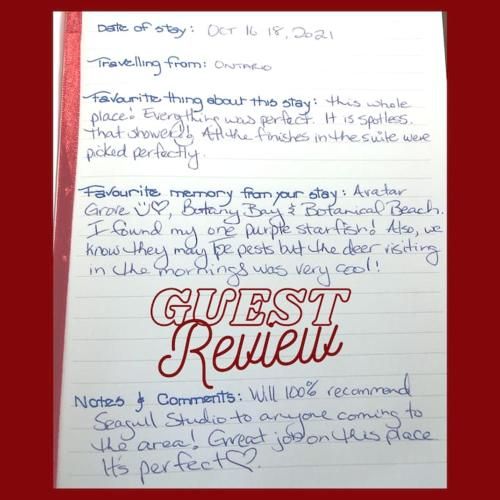 Date of stay: OCT 16 18, 2021
Travelling from: ONTARIO
Favourite thing about this stay: this whole
place! Everything was perfect. It is spotless.
That shower!! All the finishes in the suite were
picked perfectly.
Favourite memory from your stay: Avatar
Grove ♡, Botany Bay & Botanical Beach.
I found my one purple starfish! Also, we
know they may be pests but the deer visiting
in the mornings was very cool!
GUEST
Review
Notes & Comments: Will 100% recommend
Seagull Studio to anyone coming to
the area! Great job on this place
It's perfect♡.